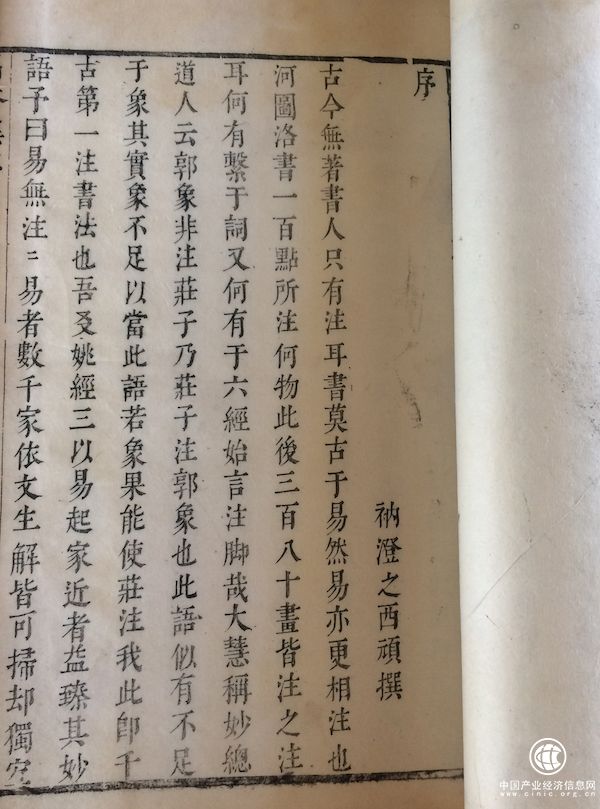 序
衲澄之西頑撰
古今無著書人只有注耳書莫古于易然易亦更相注也
河圖洛書一百點所注何物此後三百八十畫皆注之注
耳何有繫于詞又何有于六經始言注脚哉大慧稱妙總
道人云郭象非注莊子乃莊子注郭象也此語似有不足
于象其實象不足以當此語若象果能使莊注我此卽千
古第一注書法也吾友姚經三以易起家近者益臻其妙
語予曰易無注〻易者數千家依文生解皆可掃却獨究
中国产业经济信息网
www.cinic.org.cn